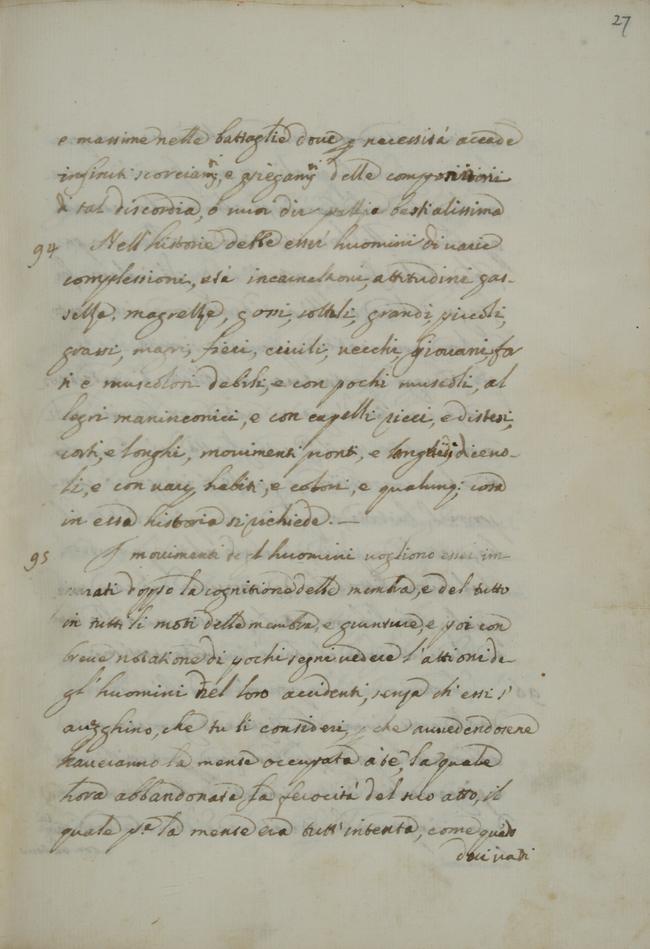 27
e massime nelle battaglie dove p necessità accade
infiniti scorciam.ti, e piegam.ti delle compositori
di tal discordia, ò vuoi dir pazzia bestialissima
94 Nell'historie debbe esser huomini di varie
complessioni, età incarnationi, attitudini gras-
sezze, magrezze, grossi, sottili, grandi, piccoli,
grassi, magri, fieri, civili, vecchi, giovani, for
ti e muscolosi debili, e con pochi muscoli, al
legri maninconici, e con capelli ricci, e distesi,
corti, e longhi, movimenti pronti, e
li, e con varij habiti, e colori, e qualunq; cosa
in essa historia si richiede. —
95 I movimenti de l'huomini vogliono esser im-
parati doppo la cognitione delle membra, e del tutto
in tutti li moti delle membra, e giunture, e poi con
breve notatione di pochi segni vedere l'attioni de
gl'huomini nel loro accidenti, senza ch'essi s'
avegghino, che tu li consideri, p che avvedendosene
haveranno la mente occupata à te, la quale
hora abbandonata la ferocità del suo atto, il
quale p.a la mente era tutt'intenta, come quādo
doi irati